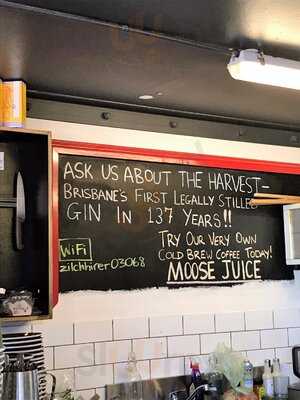 ASK US ABOUT THE HARVEST-
BRISBANE'S FIRST LEGALLY STILLED
GIN IN 137 YEARS!!
TRY OUR VERY OWN
COLD BREW COFFEE TODAY!
MOOSE JUICE
WiFi
zilchhirer03068